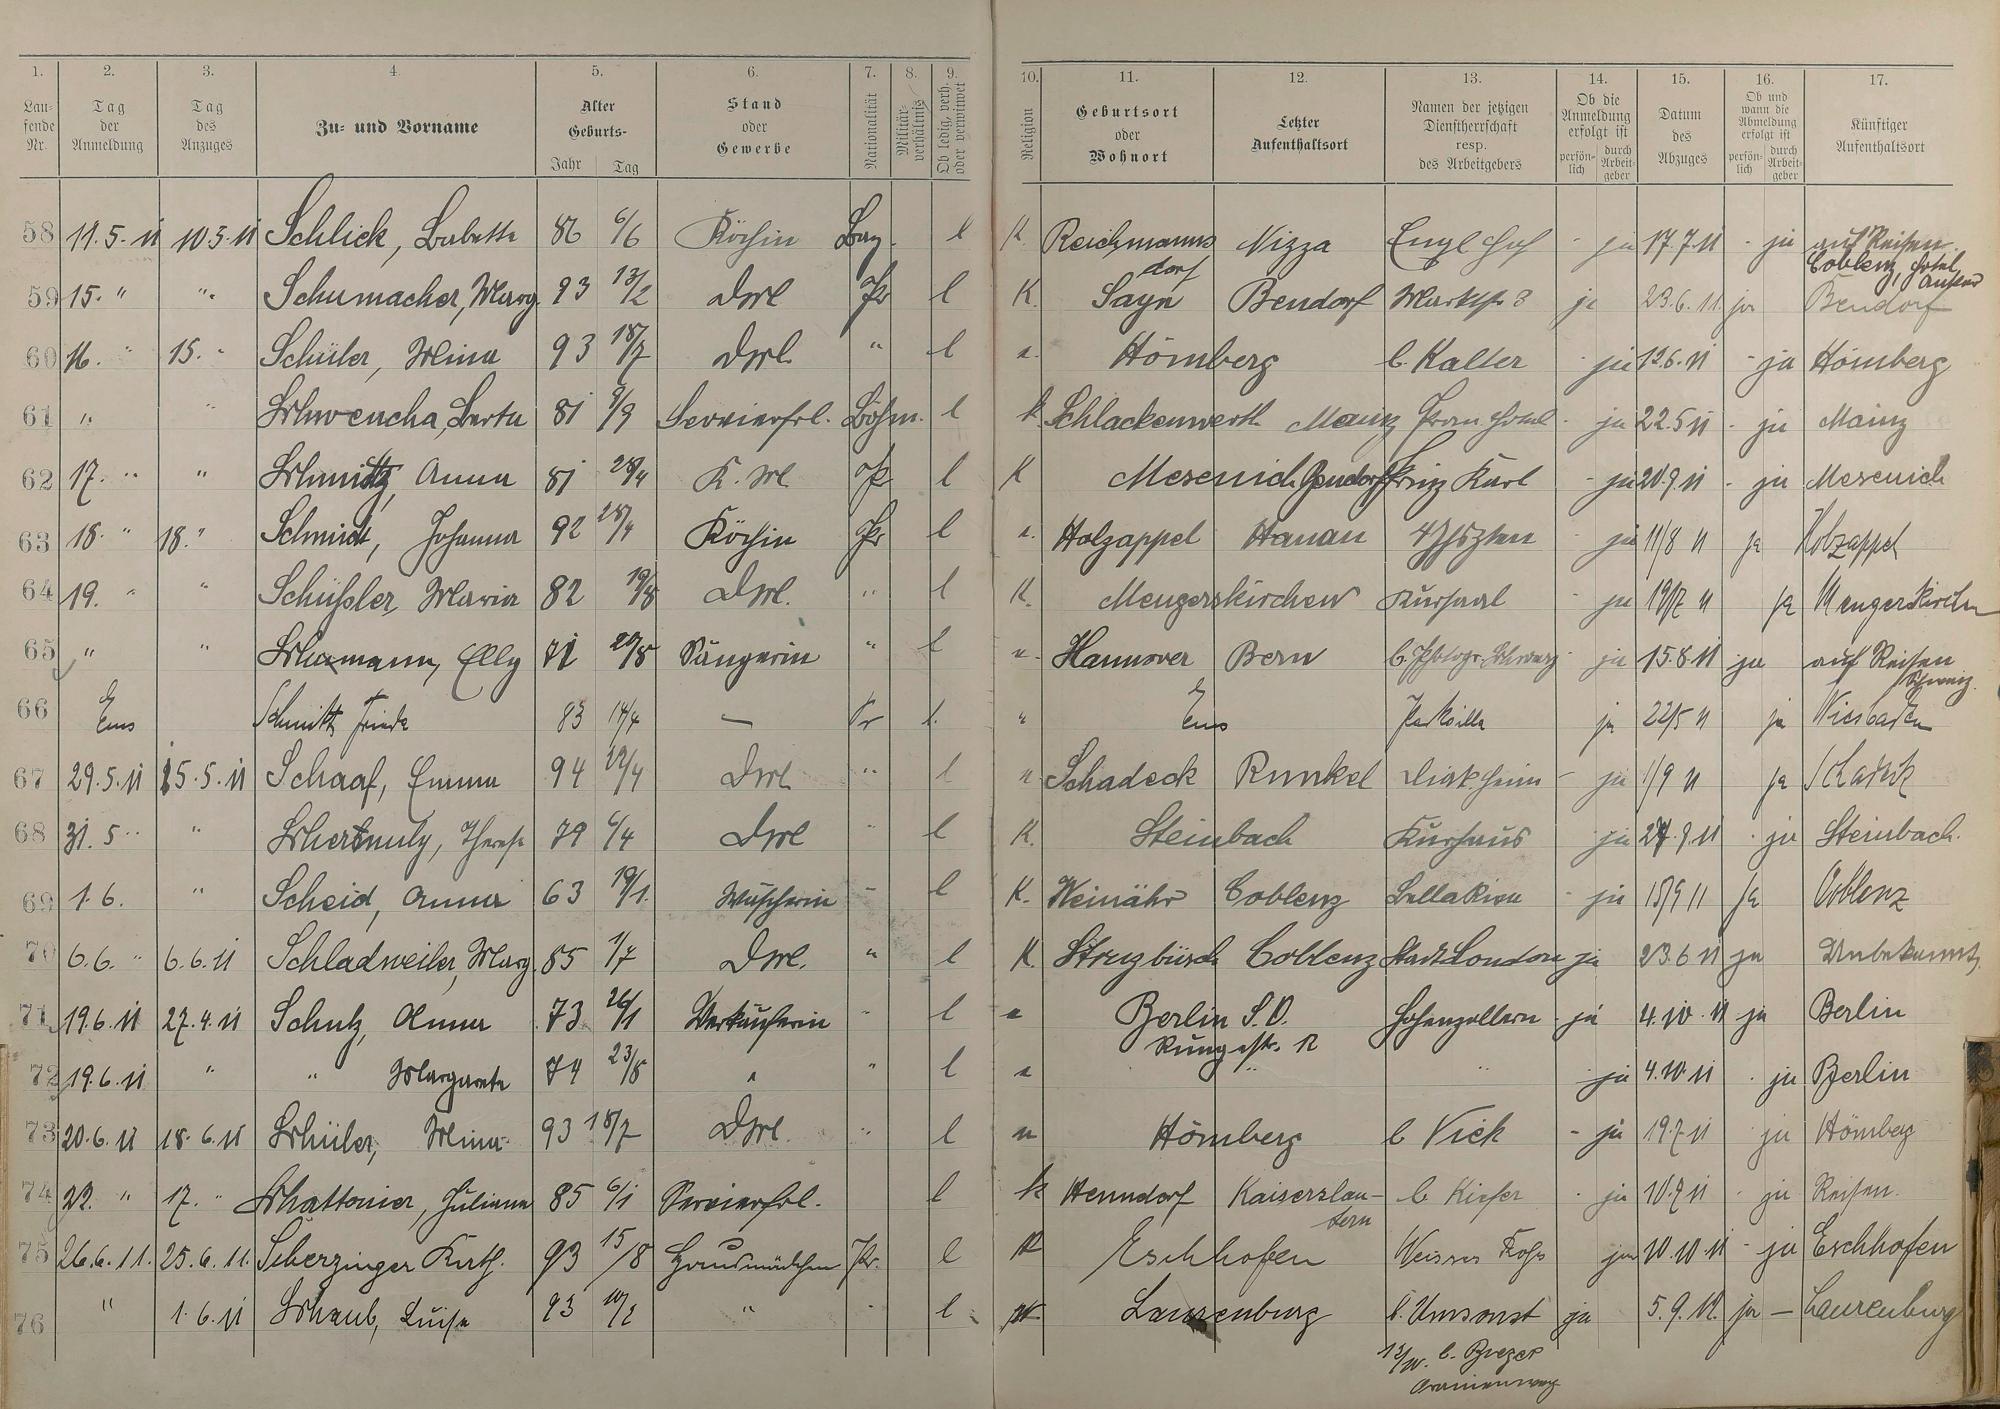 1. 2. 3. 4. 5. 6. 7. 8. 9. 10. 11. 12. 13. 14. 15. 16. 17.
Laufende Nr. | Tag der Anmeldung | Tag des Anzuges | Zu- und Vorname | Alter Geburts- Jahr Tag | Stand oder Gewerbe | Nationalität | Militärverhältnis | Ob ledig, verh. oder verwitwet | Religion | Geburtsort oder Wohnort | Letzter Aufenthaltsort | Namen der jetzigen Dienstherrschaft resp. des Arbeitgebers | Ob die Anmeldung erfolgt ist persönlich durch Arbeitgeber | Datum des Abzuges | Ob und wann die Abmeldung erfolgt ist persönlich durch Arbeitgeber | Künftiger Aufenthaltsort
58 11.5.11 10.5.11 Schlick, Babette 86 6/6 Köchin Bay. l K. Reichmannsdorf Nizza Engl Hof - ja 17.7.11 - ja auf Reisen
59 15. " " Schumacher, Marg. 93 13/2 Dml Pr l K. Sayn Bendorf Marktstr 3 ja 23.6.11. ja Coblenz, Hotel Bendorf
60 16. " 15. " Schüler, Mina 93 18/7 Dml " l e. Hömberg b. Kalter - ja 12.6.11 - ja Hömberg
61 " " Berta 81 9/9 Servierfrl. Böhm. l k. Schlackenwerth Mainz Hotel - ja 22.5.11 - ja Mainz
62 17. " " Schmitz, Anna 81 28/4 K. Ml Pr l K Mesenich Bendorf Prinz Karl - ja 20.9.11 - ja Mesenich
63 18. " 18. " Schmidt, Johanna 92 28/4 Köchin Pr l e. Holzappel Hanau 4 Jhszten - ja 11/8 11 ja Holzappel
64 19. " " Schüssler, Maria 82 19/8 Dml. " l K. Mengerskirchen Kursaal - ja 19/7 11 ja Mengerskirchen
65 " " Elly 71 20/8 Sängerin " l e. Hannover Bern b. Photogr. - ja 15.8.11 ja auf Reisen Schweiz.
66 Ems Schmitt, Frieda 83 14/4 — Pr l. " Ems Parkvilla ja 22/5 11 ja Wiesbaden
67 29.5.11 25.5.11 Schaaf, Emma 94 22/4 Dml " l e Schadeck Runkel Diakheim - ja 1/9 11 ja Schadeck
68 31.5 " " Therese 79 6/4 Dml " l K. Steinbach Kurhaus ja 27.9.11 - ja Steinbach.
69 1.6. " Scheid, Anna 63 19/1. Wäscherin " l K. Weinähr Coblenz Bella Riva - ja 15/9 11 ja Coblenz
70 6.6. " 6.6.11 Schladweiler, Marg. 85 1/7 Dml. " l K. Coblenz Stadt London ja 23.6.11 ja Unbekannt.
71 19.6.11 27.4.11 Schulz, Anna 73 26/1 Verkäuferin " l e Berlin S.O. Hohenzollern - ja 4.10.11 ja Berlin
Rungestr. 12
72 19.6.11 " " Margarete 74 23/8 " " l e " " ja 4.10.11 - ja Berlin
73 20.6.11 18.6.11 Schüler, Mina 93 18/7 Dml. " l e Hömberg b Vick - ja 19.7.11 ja Hömberg
74 22. " 17. " Schattonier, Juliane 85 6/1 Servierfrl. l k Henndorf Kaiserslautern b Kiefer - ja 10.9.11 - ja Reisen.
75 26.6.11. 25.6.11. Scherzinger Kath. 93 15/8 Hausmädchen Pr. l K Eschhofen Weisses Ross ja 10.10.11 - ja Eschhofen
76 " 1.6.11 Schaub, Luise 93 10/2 " " l Laurenburg b. Umsonst ja 5.9.11. ja — Laurenburg
12/10. b. Oranienweg